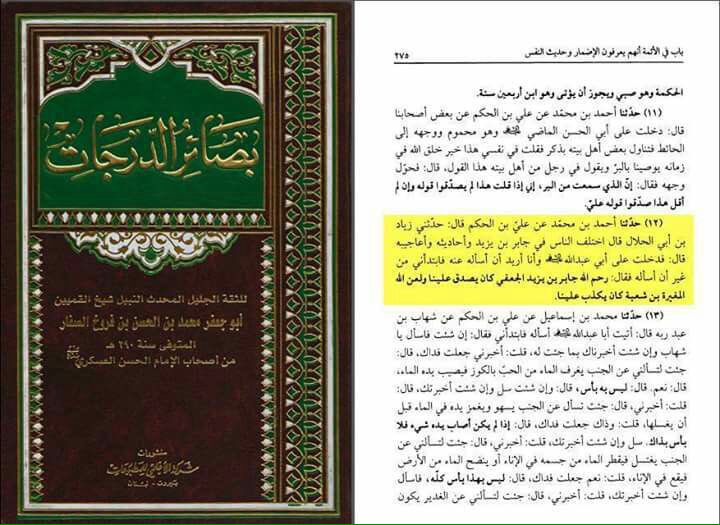 بصائر الدرجات
للثقة الجليل المحدث النبيل شيخ القميين
أبو جعفر محمد بن الحسن بن فروخ الصفار
المتوفى سنة ٢٩٠ هـ
من أصحاب الإمام الحسن العسكري
منشورات
شركة الأعلمي للمطبوعات
بيروت - لبنان
باب في الأئمة أنهم يعرفون الإضمار وحديث النفس
٢٧٥
الحكمة وهو صبي ويجوز أن يؤتى وهو ابن أربعين سنة.
(١١) حدّثنا أحمد بن محمّد عن علي بن الحكم عن بعض أصحابنا
قال: دخلت على أبي الحسن الماضي وهو محموم ووجهه إلى
الحائط فتناول بعض أهل بيته بذكر فقلت في نفسي هذا خير خلق الله في
زمانه يوصينا بالبرّ ويقول في رجل من أهل بيته هذا القول، قال: فحوّل
وجهه فقال: إنّ الذي سمعت من البر، إني إذا قلت هذا لم يصدّقوا قوله وإن لم
أقل هذا صدّقوا قوله عليّ.
(١٢) حدّثنا أحمد بن محمّد عن عليّ بن الحكم قال: حدّثني زياد
بن أبي الحلال قال اختلف الناس في جابر بن يزيد وأحاديثه وأعاجيبه
قال: فدخلت على أبي عبدالله وأنا أريد أن أسأله عنه فابتدأني من
غير أن أسأله فقال: رحم الله جابر بن يزيد الجعفي كان يصدق علينا ولعن الله
المغيرة بن شعبة كان يكذب علينا.
(١٣) حدّثنا محمد بن إسماعيل عن علي بن الحكم عن شهاب بن
عبد ربه قال: أتيت أبا عبدالله أسأله فابتدأني فقال: إن شئت فاسأل يا
شهاب وإن شئت أخبرناك بما جئت له، قلت: أخبرني جعلت فداك، قال:
جئت لتسألني عن الجنب يغرف الماء من الحبّ بالكوز فيصيب يده الماء،
قال: نعم. قال: ليس به بأس، قال: وإن شئت سل وإن شئت أخبرتك، قال:
قلت: أخبرني، قال: جئت تسأل عن الجنب يسهو ويغمز يده في الماء قبل
أن يغسلها، قلت: وذاك جعلت فداك، قال: إذا لم يكن أصاب يده شيء فلا
بأس بذاك. سل وإن شئت أخبرتك، قلت: أخبرني، قال: جئت لتسألني عن
الجنب يغتسل فيقطر الماء من جسمه في الإناء أو ينضح الماء من الأرض
فيقع في الإناء، قلت: نعم جعلت فداك، قال: ليس بهذا بأس كلّه، فقال: إن
شئت سل وإن شئت أخبرتك، قلت: أخبرني، قال: جئت لتسألني عن الغدير يكون